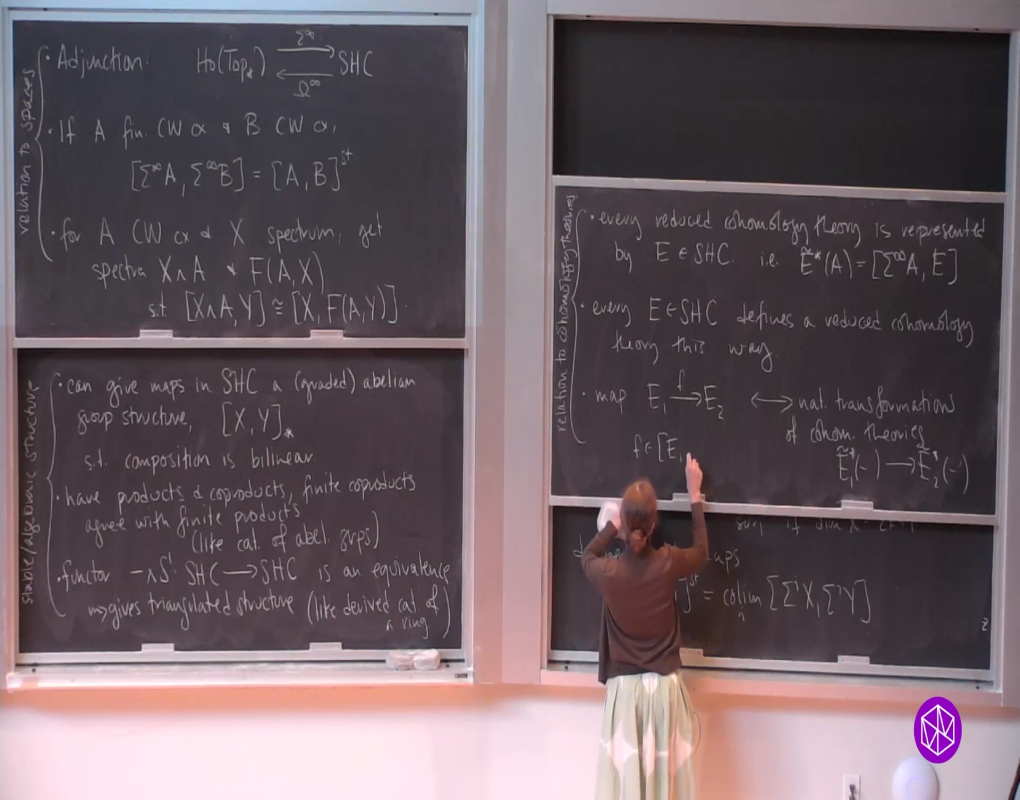 relation to spaces
• Adjunction: Ho(Top_*) ⇄ SHC
Σ^∞
Ω^∞
• If A fin. CW cx & B CW cx,
[Σ^∞A, Σ^∞B] = [A, B]^st
• for A CW cx & X spectrum, get
spectra X∧A & F(A,X)
s.t. [X∧A,Y] ≅ [X, F(A,Y)].
stable/algebraic structure
• can give maps in SHC a (graded) abelian
group structure, [X,Y]_*
s.t. composition is bilinear
• have products & coproducts, finite coproducts
agree with finite products
(like cat. of abel. grps)
• functor -∧S¹: SHC → SHC is an equivalence
⇝ gives triangulated structure (like derived cat. of
a ring)
relation to cohomology theories
• every reduced cohomology theory is represented
by E ∈ SHC i.e. Ẽ*(A) = [Σ^∞A, E]
• every E ∈ SHC defines a reduced cohomology
theory this way
• map E₁ →^f E₂ ⟷ nat. transformations
of cohom. theories
f ∈ [E₁
Ẽ₁*(-) → Ẽ₂*(-)
if dim X
= colim_n [Σ^n X, Σ^n Y]